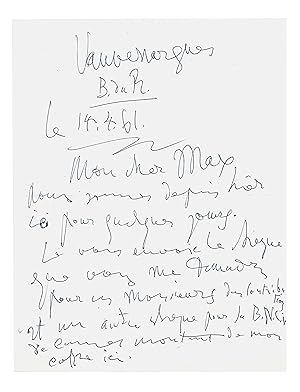 Vauvenargues
B. du R.
le 14.4.61.
Mon cher Max
nous sommes depuis hier
ici pour quelques jours.
Je vous envoie le chèque
que vous me demandez
pour ces Messieurs des
et un autre chèque pour la B.N.C.I.
de Cannes montant de mon
coffre ici.